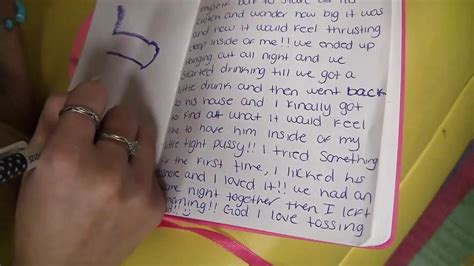 myself but to stare at his
crotch and wonder how big it was
and how it would feel thrusting
deep inside of me!! we ended up
hanging out all night and we
started drinking till we got a
little drunk and then went back
to his house and I finally got
to find out what it would feel
like to have him inside of my
little tight pussy!! I tried something
for the first time, I licked his
and I loved it!! we had an
night together then I left
morning!! God I love tossing